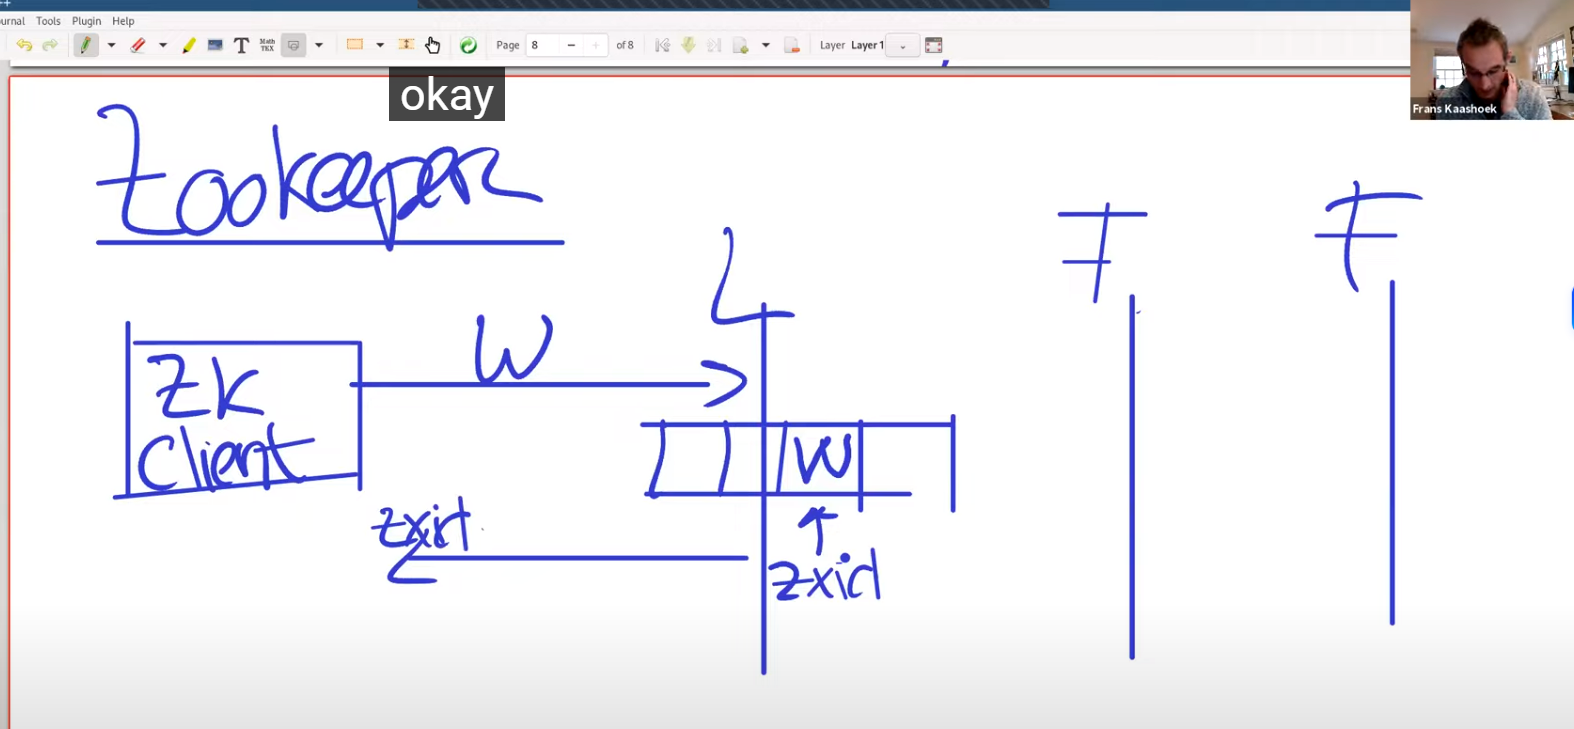 ++
urnal Tools Plugin Help
T Math TEX Page 8 − + of 8 Layer Layer 1
okay
Frans Kaashoek
Zookeeper
L F F
W
ZK
Client
W
zxid
zxid